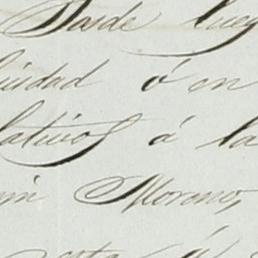 Desde lueg
iudad ó en
lativos á la
in Moreno,
esta á